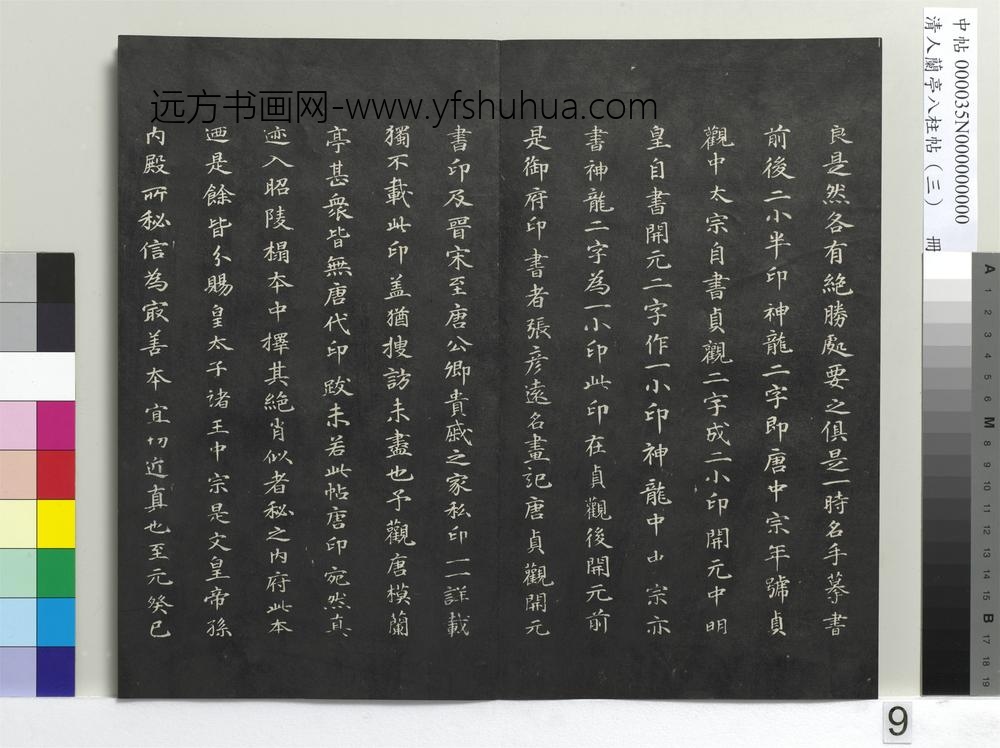 良是然各有絶勝處要之俱是一時名手摹書
前後二小半印神龍二字即唐中宗年號貞
觀中太宗自書貞觀二字成二小印開元中明
皇自書開元二字作一小印神龍中中宗亦
書神龍二字為一小印此印在貞觀後開元前
是御府印書者張彦遠名畫記唐貞觀開元
書印及晉宋至唐公卿貴戚之家私印一一詳載
獨不載此印盖猶搜訪未盡也予觀唐模蘭
亭甚衆皆無唐代印跋未若此帖唐印宛然真
迹入昭陵榻本中擇其絶肖似者秘之内府此本
迺是餘皆分賜皇太子諸王中宗是文皇帝孫
内殿所秘信為㝡善本宜切近真也至元癸巳
远方书画网-www.yfshuhua.com
中帖000035N000000000
清人蘭亭八柱帖（三） 冊
A 1 2 3 4 5 6 M 8 9 10 11 12 13 14 15 B 17 18 19
9